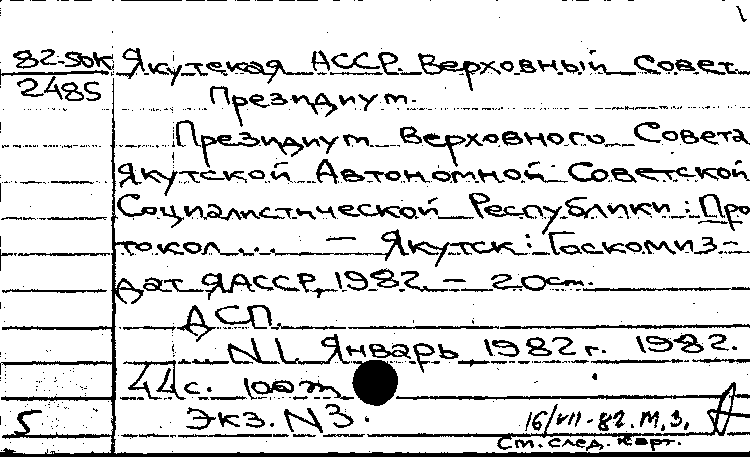 82-5ок Якутская АССР. Верховный Совет.
2485 Президиум.
Президиум Верховного Совета
Якутской Автономной Советской
Социалистической Республики: Про
токол... — Якутск: Госкомиз-
дат ЯАССР, 1982. - 20см.
ДСП.
... N 1. Январь, 1982 г. 1982.
44 с. 100
5 Экз. N3.
16/VII-82. М.З.
См. след. карт.